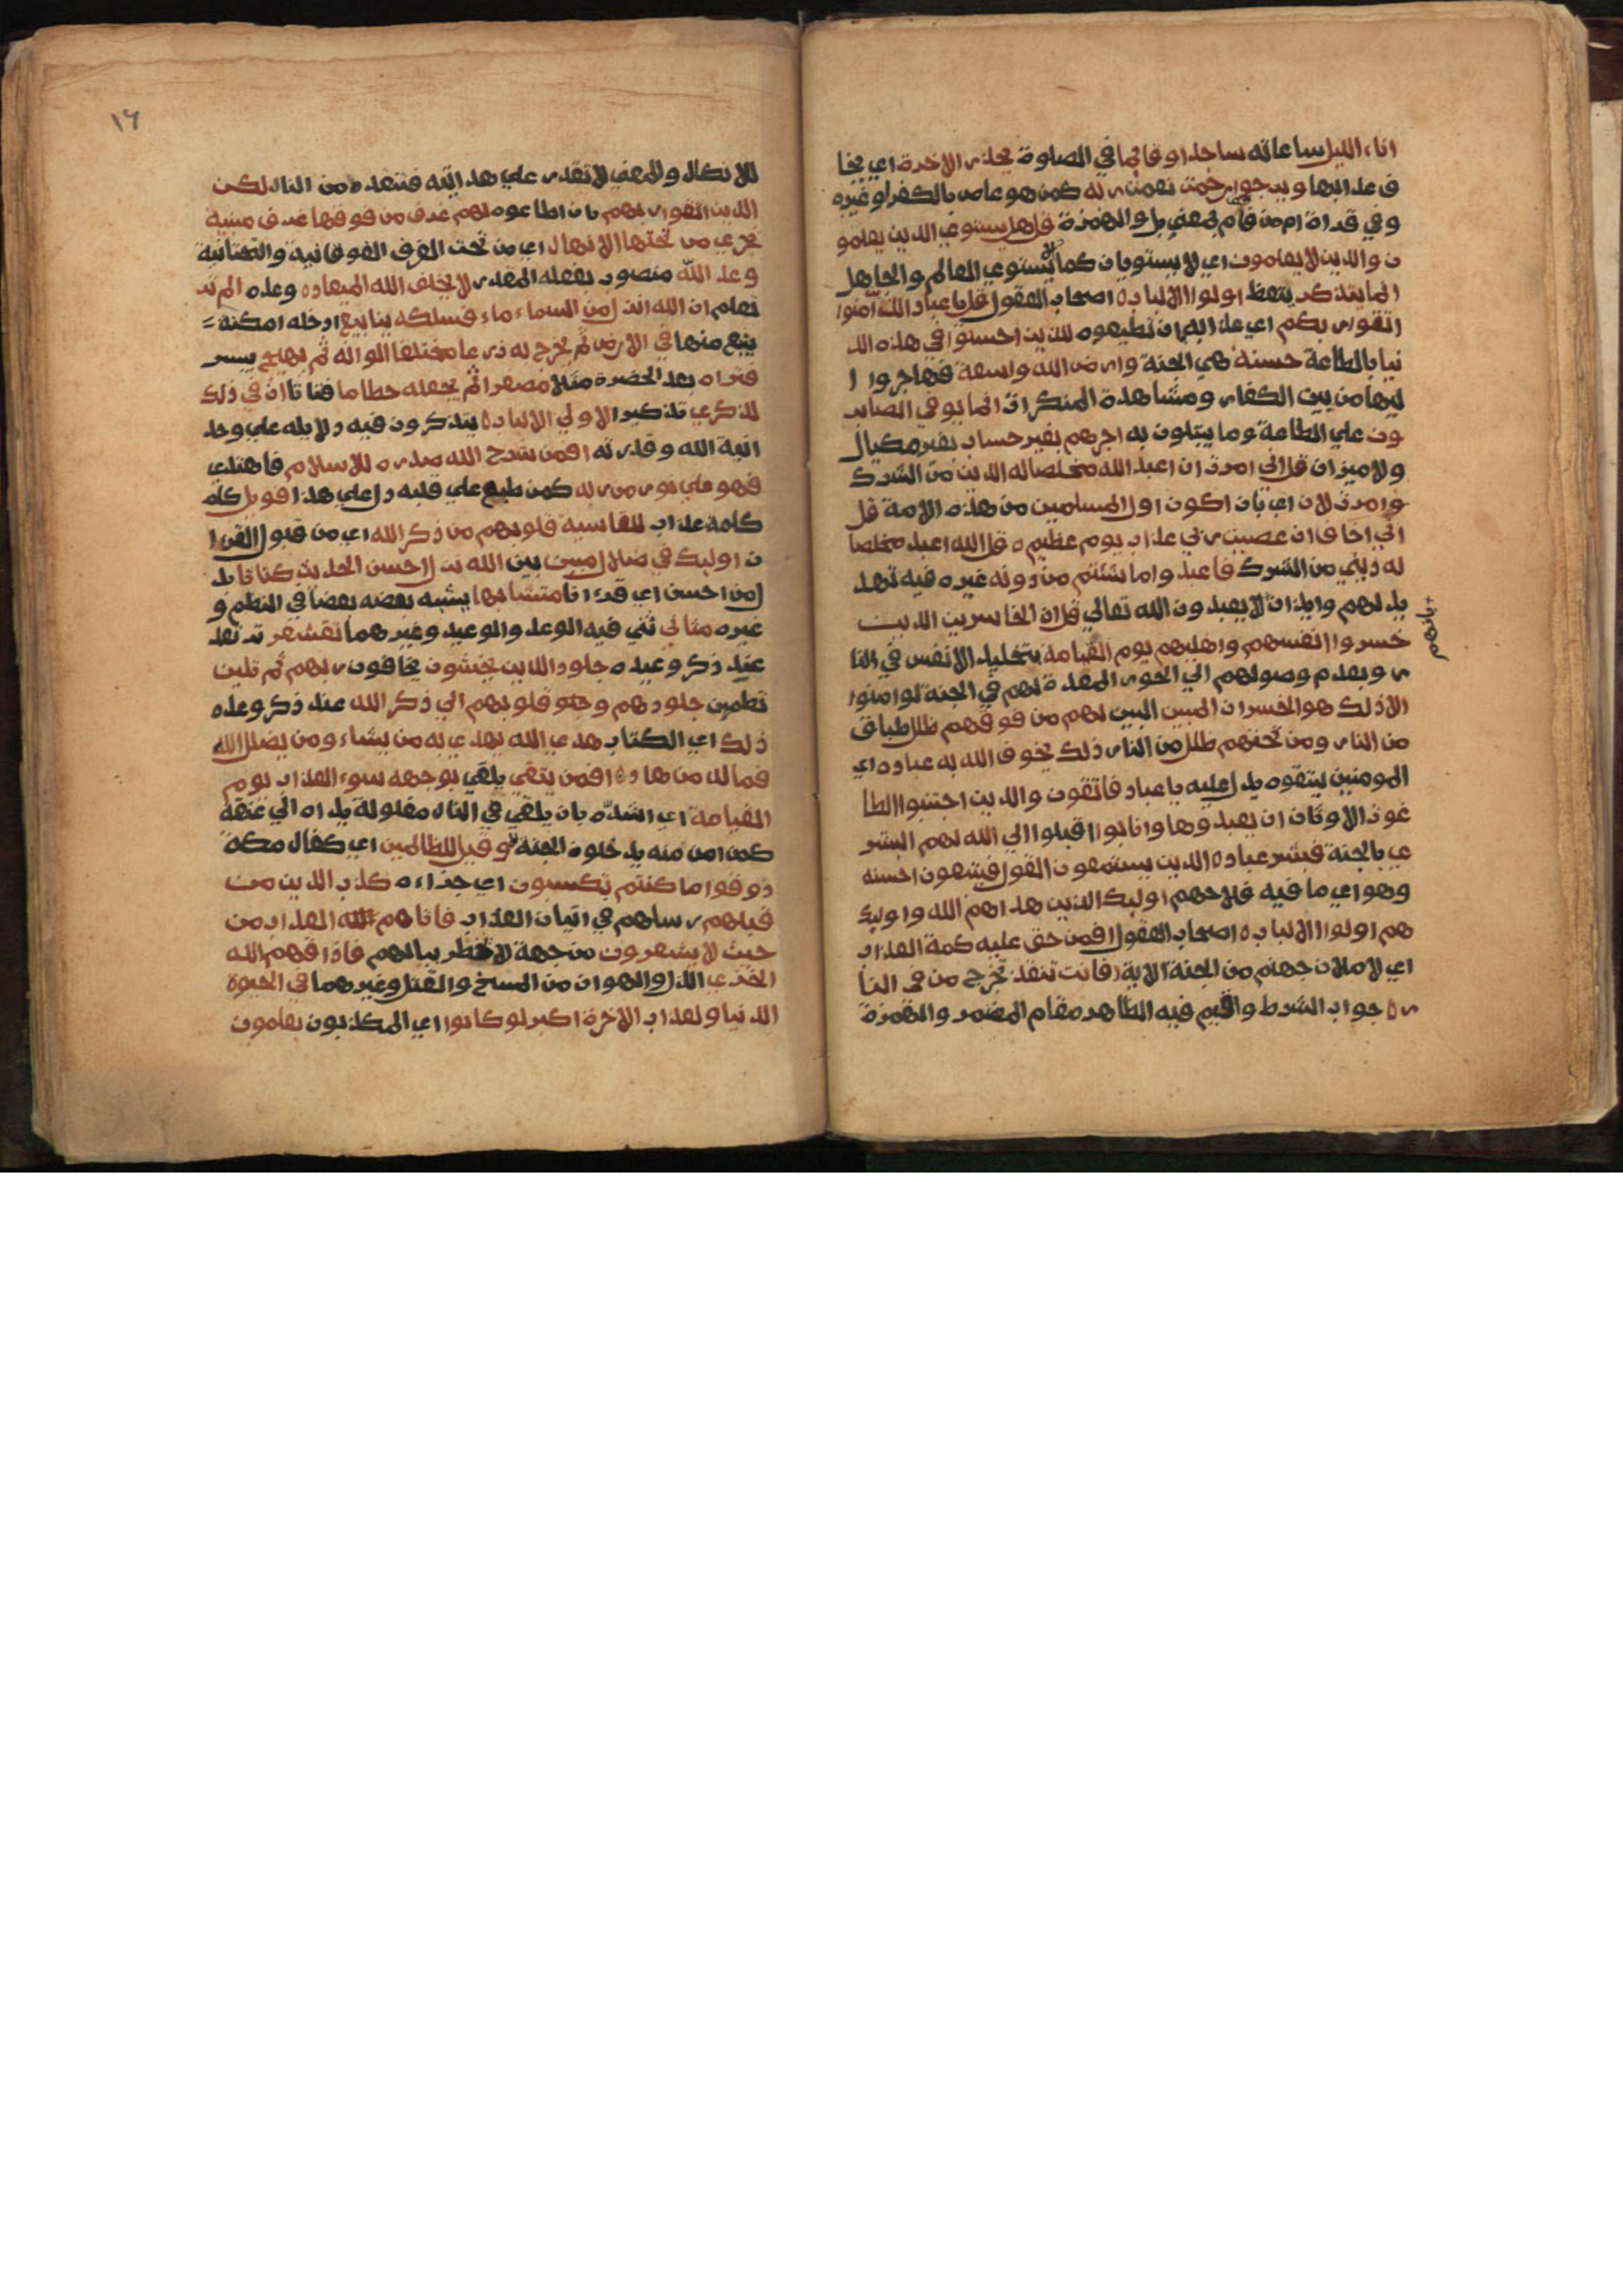 اناء الليل ساعاته ساجدا وقائما في الصلوة يحذر الاخرة اي يخا
ف عذابها ويرجوا رحمت نعمت ربه كمن هو عاص بالكفر او غيره
وفي قراة ام من فام بمعني بل والهمزة قل هل يستوي الذين يعلمو
ن والذين لا يعلمون اي لا يستويان كما لا يستوي العالم والجاهل
انما يتذكر يتعظ اولوا الالباب ه اصحاب العقول قل يا عباد الذين امنوا
اتقوا ربكم اي عذابه بان تطيعوه للذين احسنوا في هذه الد
نيا بالطاعة حسنة هي الجنة وارض الله واسعة فهاجروا ا
ليها من بين الكفار ومشاهدة المنكرات انما يوفي الصابر
ون علي الطاعة وما يبتلون به اجرهم بغير حساب بغير مكيال
ولا ميزان قل اني امرت ان اعبد الله مخلصا له الدين من الشرك
وامرت لان اي بان اكون اول المسلمين من هذه الامة قل
اني اخاف ان عصيت ربي عذاب يوم عظيم ه قل الله اعبد مخلصا
له ديني من الشرك فاعبدوا ما شئتم من دونه غيره فيه تهد
يد لهم وايذان بانهم لا يعبدون الله تعالي قل ان الخاسرين الذين
خسروا انفسهم واهليهم يوم القيامة بتخليد الانفس في النا
ر وبعدم وصولهم الي الحور المعدة لهم في الجنة لو امنوا
الا ذلك هو الخسران المبين البين لهم من فوقهم ظلل طباق
من النار ومن تحتهم ظلل من النار ذلك يخوف الله به عباده اي
المومنين ليتقوه يدل عليه يا عباد فاتقون والذين اجتنبوا الطا
غوت الاوثان ان يعبدوها وانابوا اقبلوا الي الله لهم البشر
ي بالجنة فبشر عباد ه الذين يستمعون القول فيتبعون احسنه
وهو اي ما فيه فلاحهم اوليك الذين هداهم الله واوليك
هم اولوا الالباب ه اصحاب العقول افمن حق عليه كمة العذاب
اي لاملان جهنم من الجنة الاية افانت تنقذ تخرج من في النا
ر ه جواب الشرط واقيم فيه الظاهر مقام المضمر والهمزة
١٦
للانكار والمعني لا تقدر علي هدايته فتنقذه من النار لكن
الذين اتقوا ربهم بان اطاعوه لهم غرف من فوقها غرف مبنية
تجري من تحتها الانهار اي من تحت الغرف الفوقانية والتحتانية
وعد الله منصوب بفعله المقدر لا يخلف الله الميعاد ه وعده الم تر
تعلم ان الله انزل من السماء ماء فسلكه ينابيع ادخله امكنة
ينبع منها في الارض ثم يخرج به زرعا مختلفا الوانه ثم يهيج ييبس
فتراه بعد الخضرة مثلا مصفرا ثم يجعله حطاما فتاتا ان في ذلك
لذكري تذكيرا لاولي الالباب ه يتذكرون فيه دلالة علي وحد
انية الله وقدرته افمن شرح الله صدره للاسلام فاهتدي
فهو علي نور من ربه كمن طبع علي قلبه دل علي هذا فويل كلمة
كلمة عذاب للقاسية قلوبهم من ذكر الله اي من قبول القرا
ن اوليك في ضلال مبين بين الله نزل احسن الحديث كتابا بد
ل من احسن اي قرءانا متشابها يشبه بعضه بعضا في النظم و
غيره مثاني ثني فيه الوعد والوعيد وغيرهما تقشعر ترتعد
عند ذكر وعيده جلود الذين يخشون يخافون ربهم ثم تلين
تطمين جلودهم وقلوبهم الي ذكر الله عند ذكر وعده
ذلك اي الكتاب هدي الله يهدي به من يشاء ومن يضلل الله
فما له من هاد ه افمن يتقي يلقي بوجهه سوء العذاب يوم
القيامة اي اشده بان يلقي في النار مغلولة يداه الي عنقه
كمن امن منه بدخلون الجنة وقيل للظالمين اي كفار مكة
ذوقوا ما كنتم تكسبون اي جزاءه كذب الذين من
قبلهم رسلهم في اتيان العذاب فاتاهم العذاب من
حيث لا يشعرون من جهة لا تخطر ببالهم فاذاقهم الله
الخزي الذل والهوان من المسخ والقتل وغيرهما في الحيوة
الدنيا ولعذاب الاخرة اكبر لو كانوا اي المكذبون يعلمون